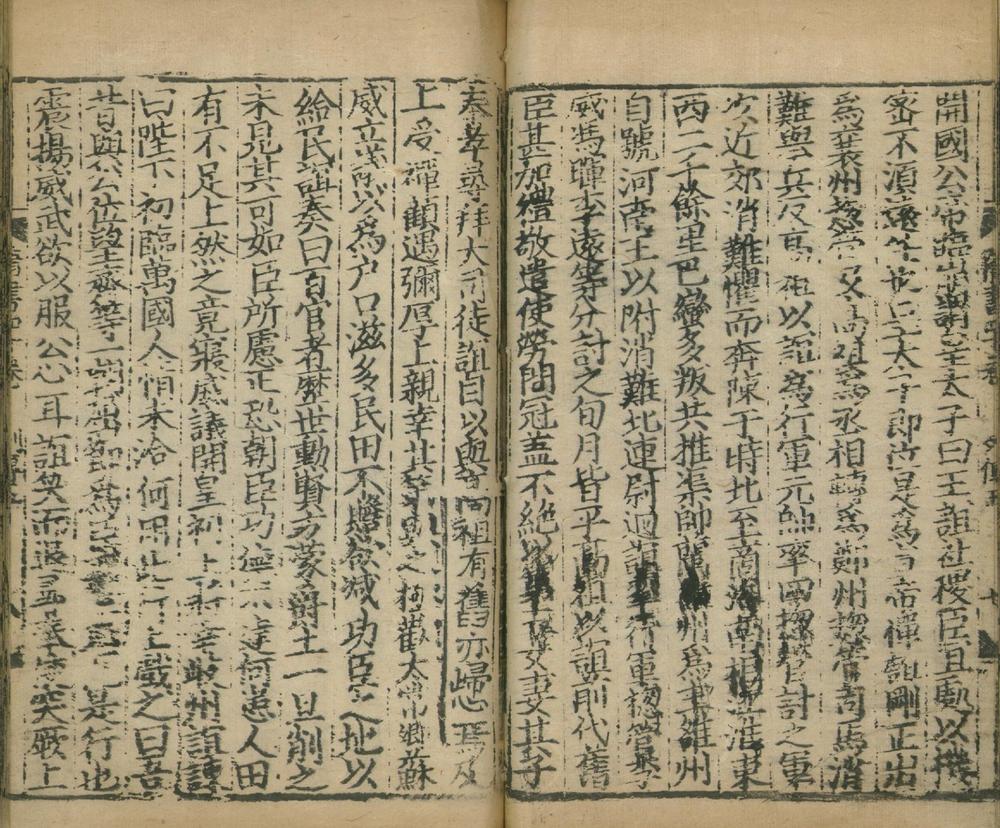 開國公帝臨崩謂皇太子曰王誼社稷臣宜處以機
密不須遠任也皇太子即位是為宣帝憚誼剛正出
為襄州總管及高祖為丞相轉為鄭州總管司馬消
難舉兵反高祖以誼為行軍元帥率四總管討之軍
次近郊消難懼而奔陳于時北至商洛南拒江淮東
西二千餘里巴蠻多叛共推渠帥蘭州為主雒州
自號河南王以附消難北連尉迥誼率行軍總管李
威馮暉李遠等分討之旬月皆平高祖以誼前代舊
臣甚加禮敬遣使勞問冠蓋不絕以第五女妻其子
奉孝尋拜大司徒誼自以與高祖有舊亦歸心焉及
上受禪顧遇彌厚上親幸其第與之極歡太常卿蘇
威立議以為户口滋多民田不贍欲減功臣之地以
給民誼奏曰百官者歷世勳賢方蒙爵土一旦削之
未見其可如臣所慮正恐朝臣功德不建何患人田
有不足上然之竟寢威議開皇初上將幸岐州誼諫
曰陛下初臨萬國人情未洽何用此行上戲之曰吾
昔與公位望齊等一朝屈節為臣是行也
震揚威武欲以服公心耳誼笑而退尋奉使突厥上